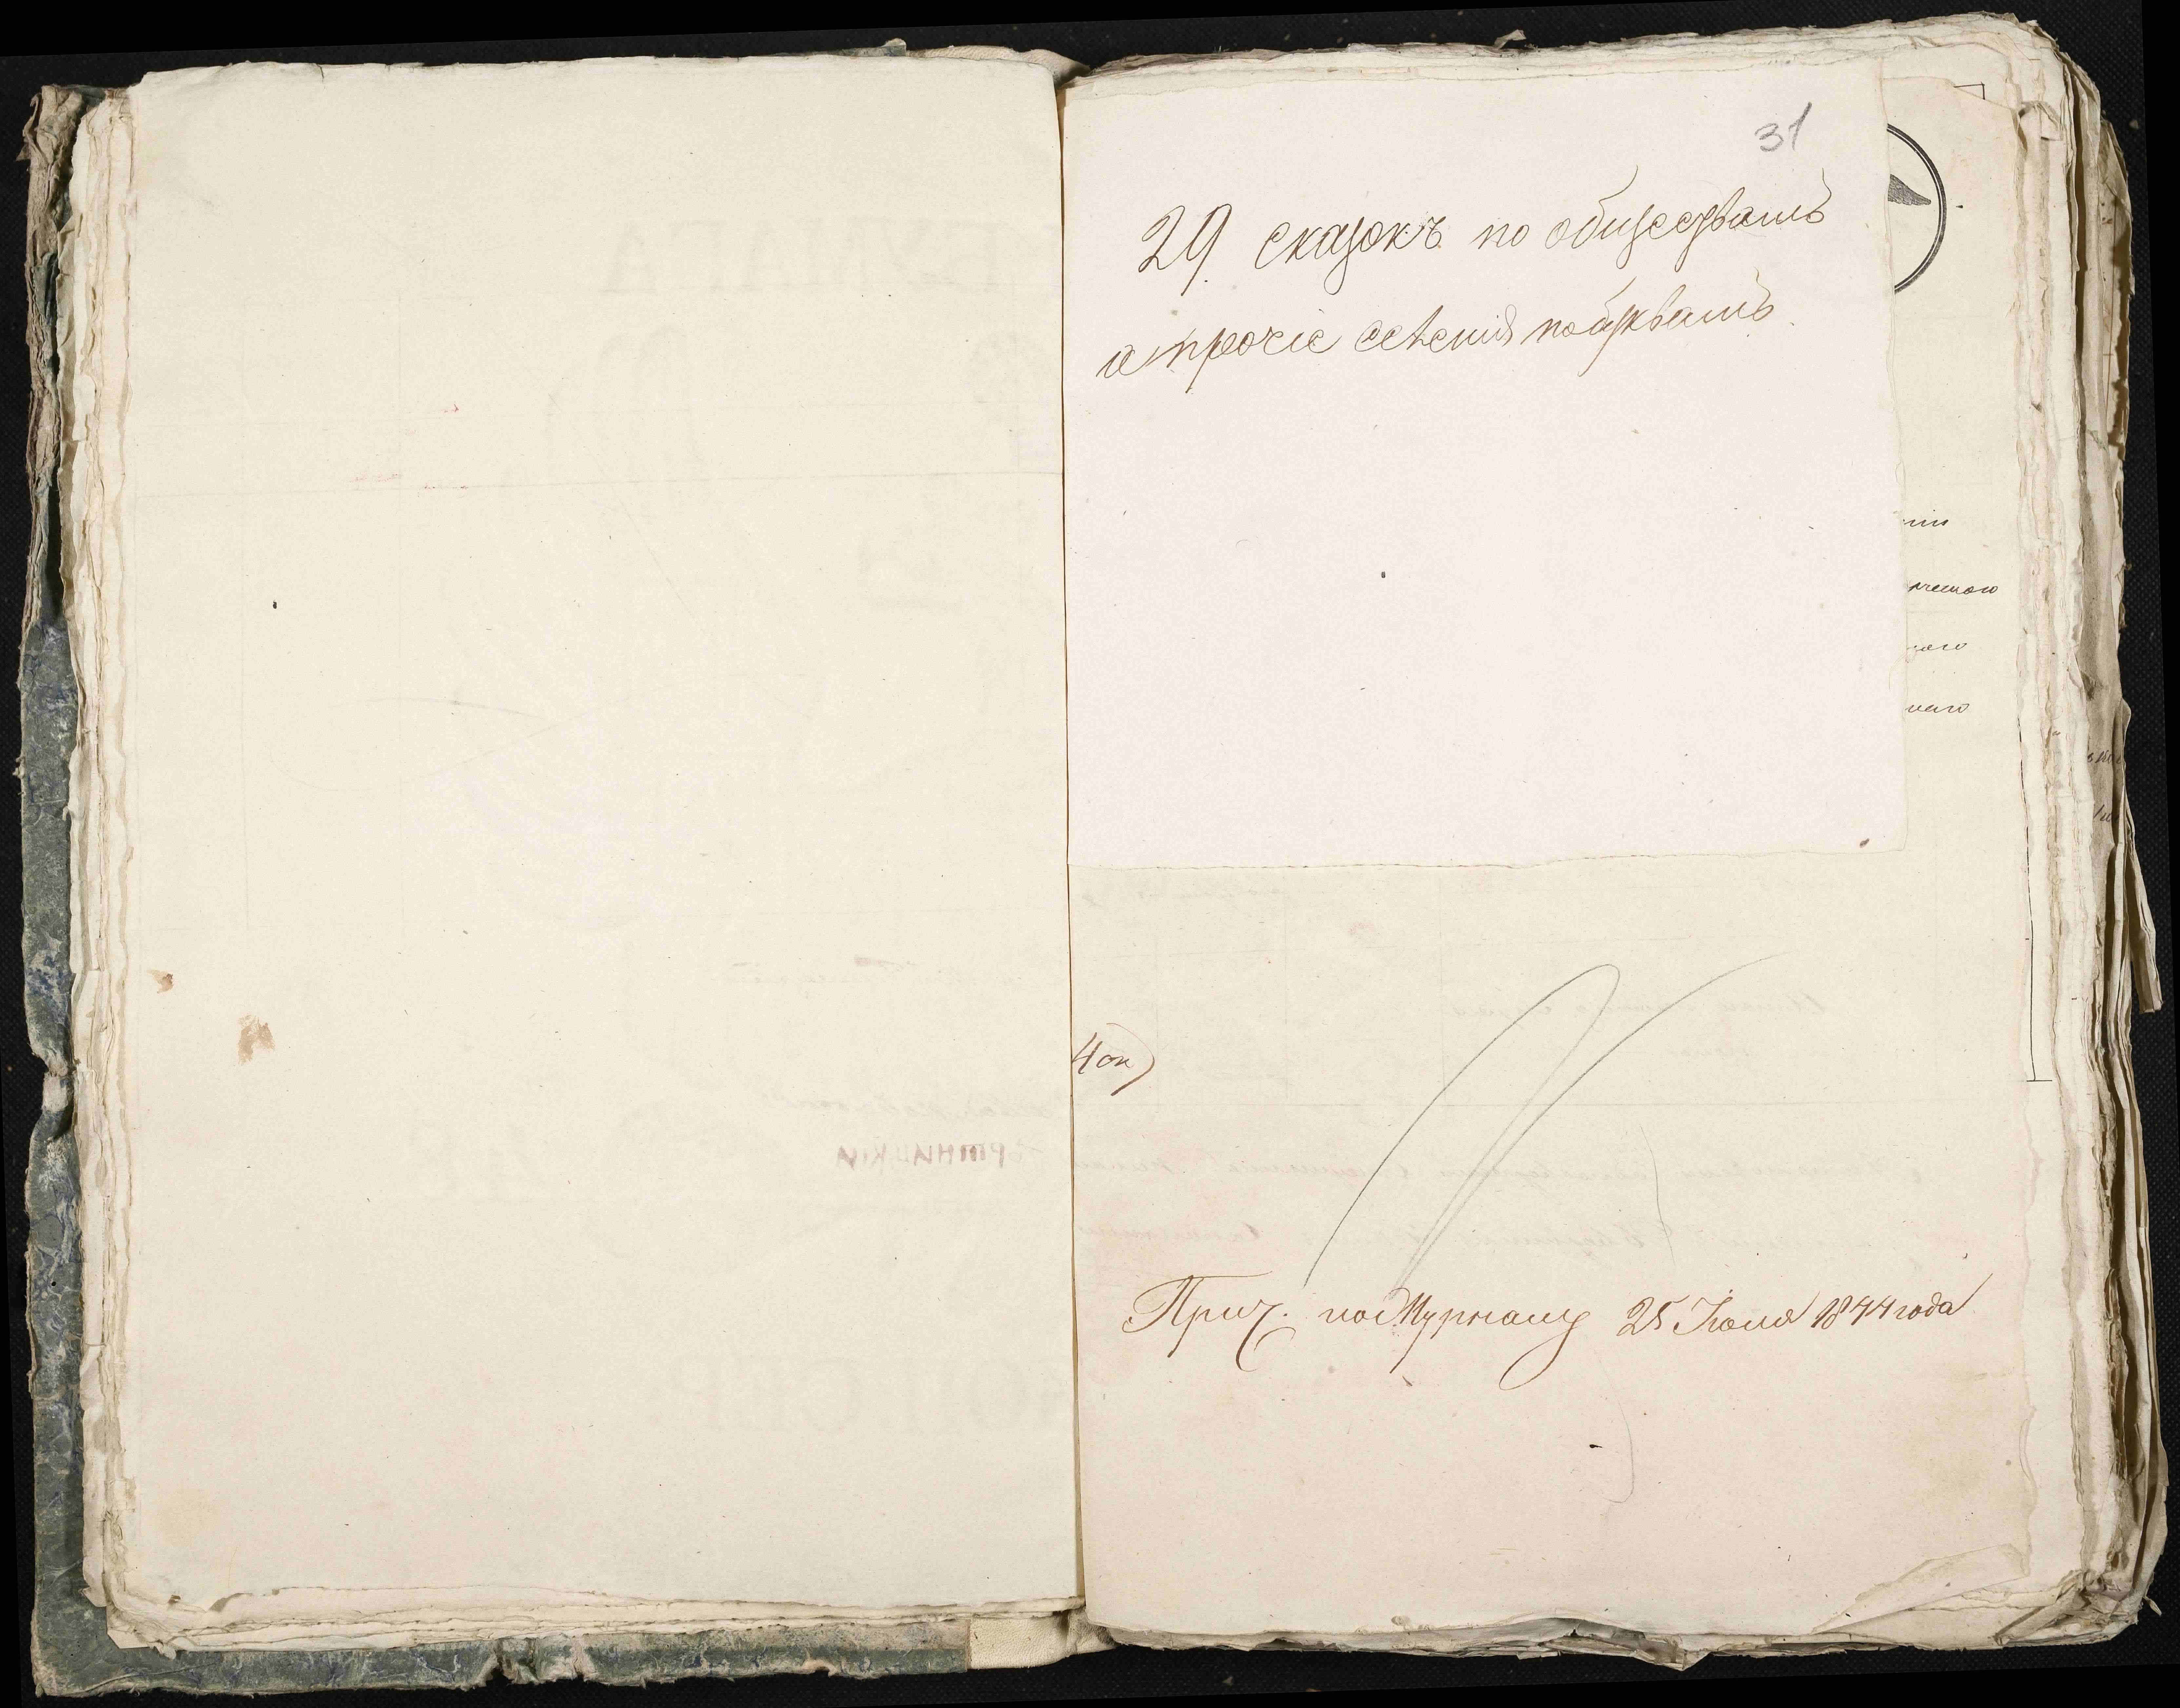 31
29 сказокъ по обществамъ
и прочіе селенія по буквамъ
4 ок)
Прич. по Журналу 25 Іюля 1844 года